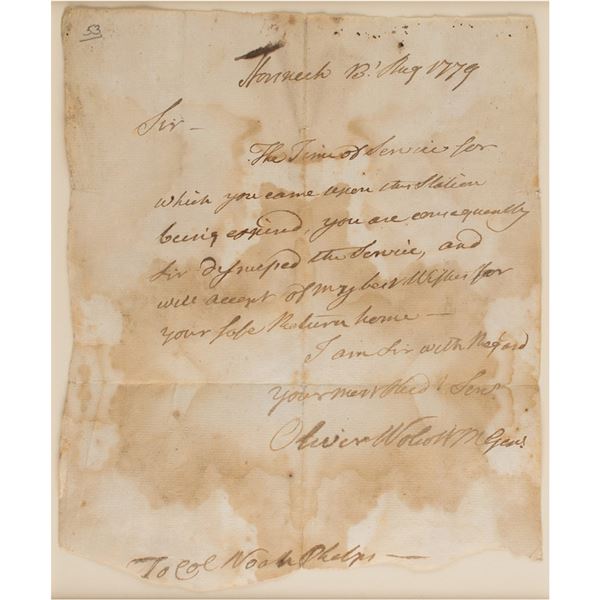 53
Horsneck 13t Aug 1779
Sir —
The Time of Service for
which you came upon this Station
being expired, you are consequently
Sir dismissed the Service, and
will accept of my best Wishes for
your safe Return home —
I am Sir with Regard
your most Obed't Serv't
Oliver Wolcott M Genl
To Col Noah Phelps —